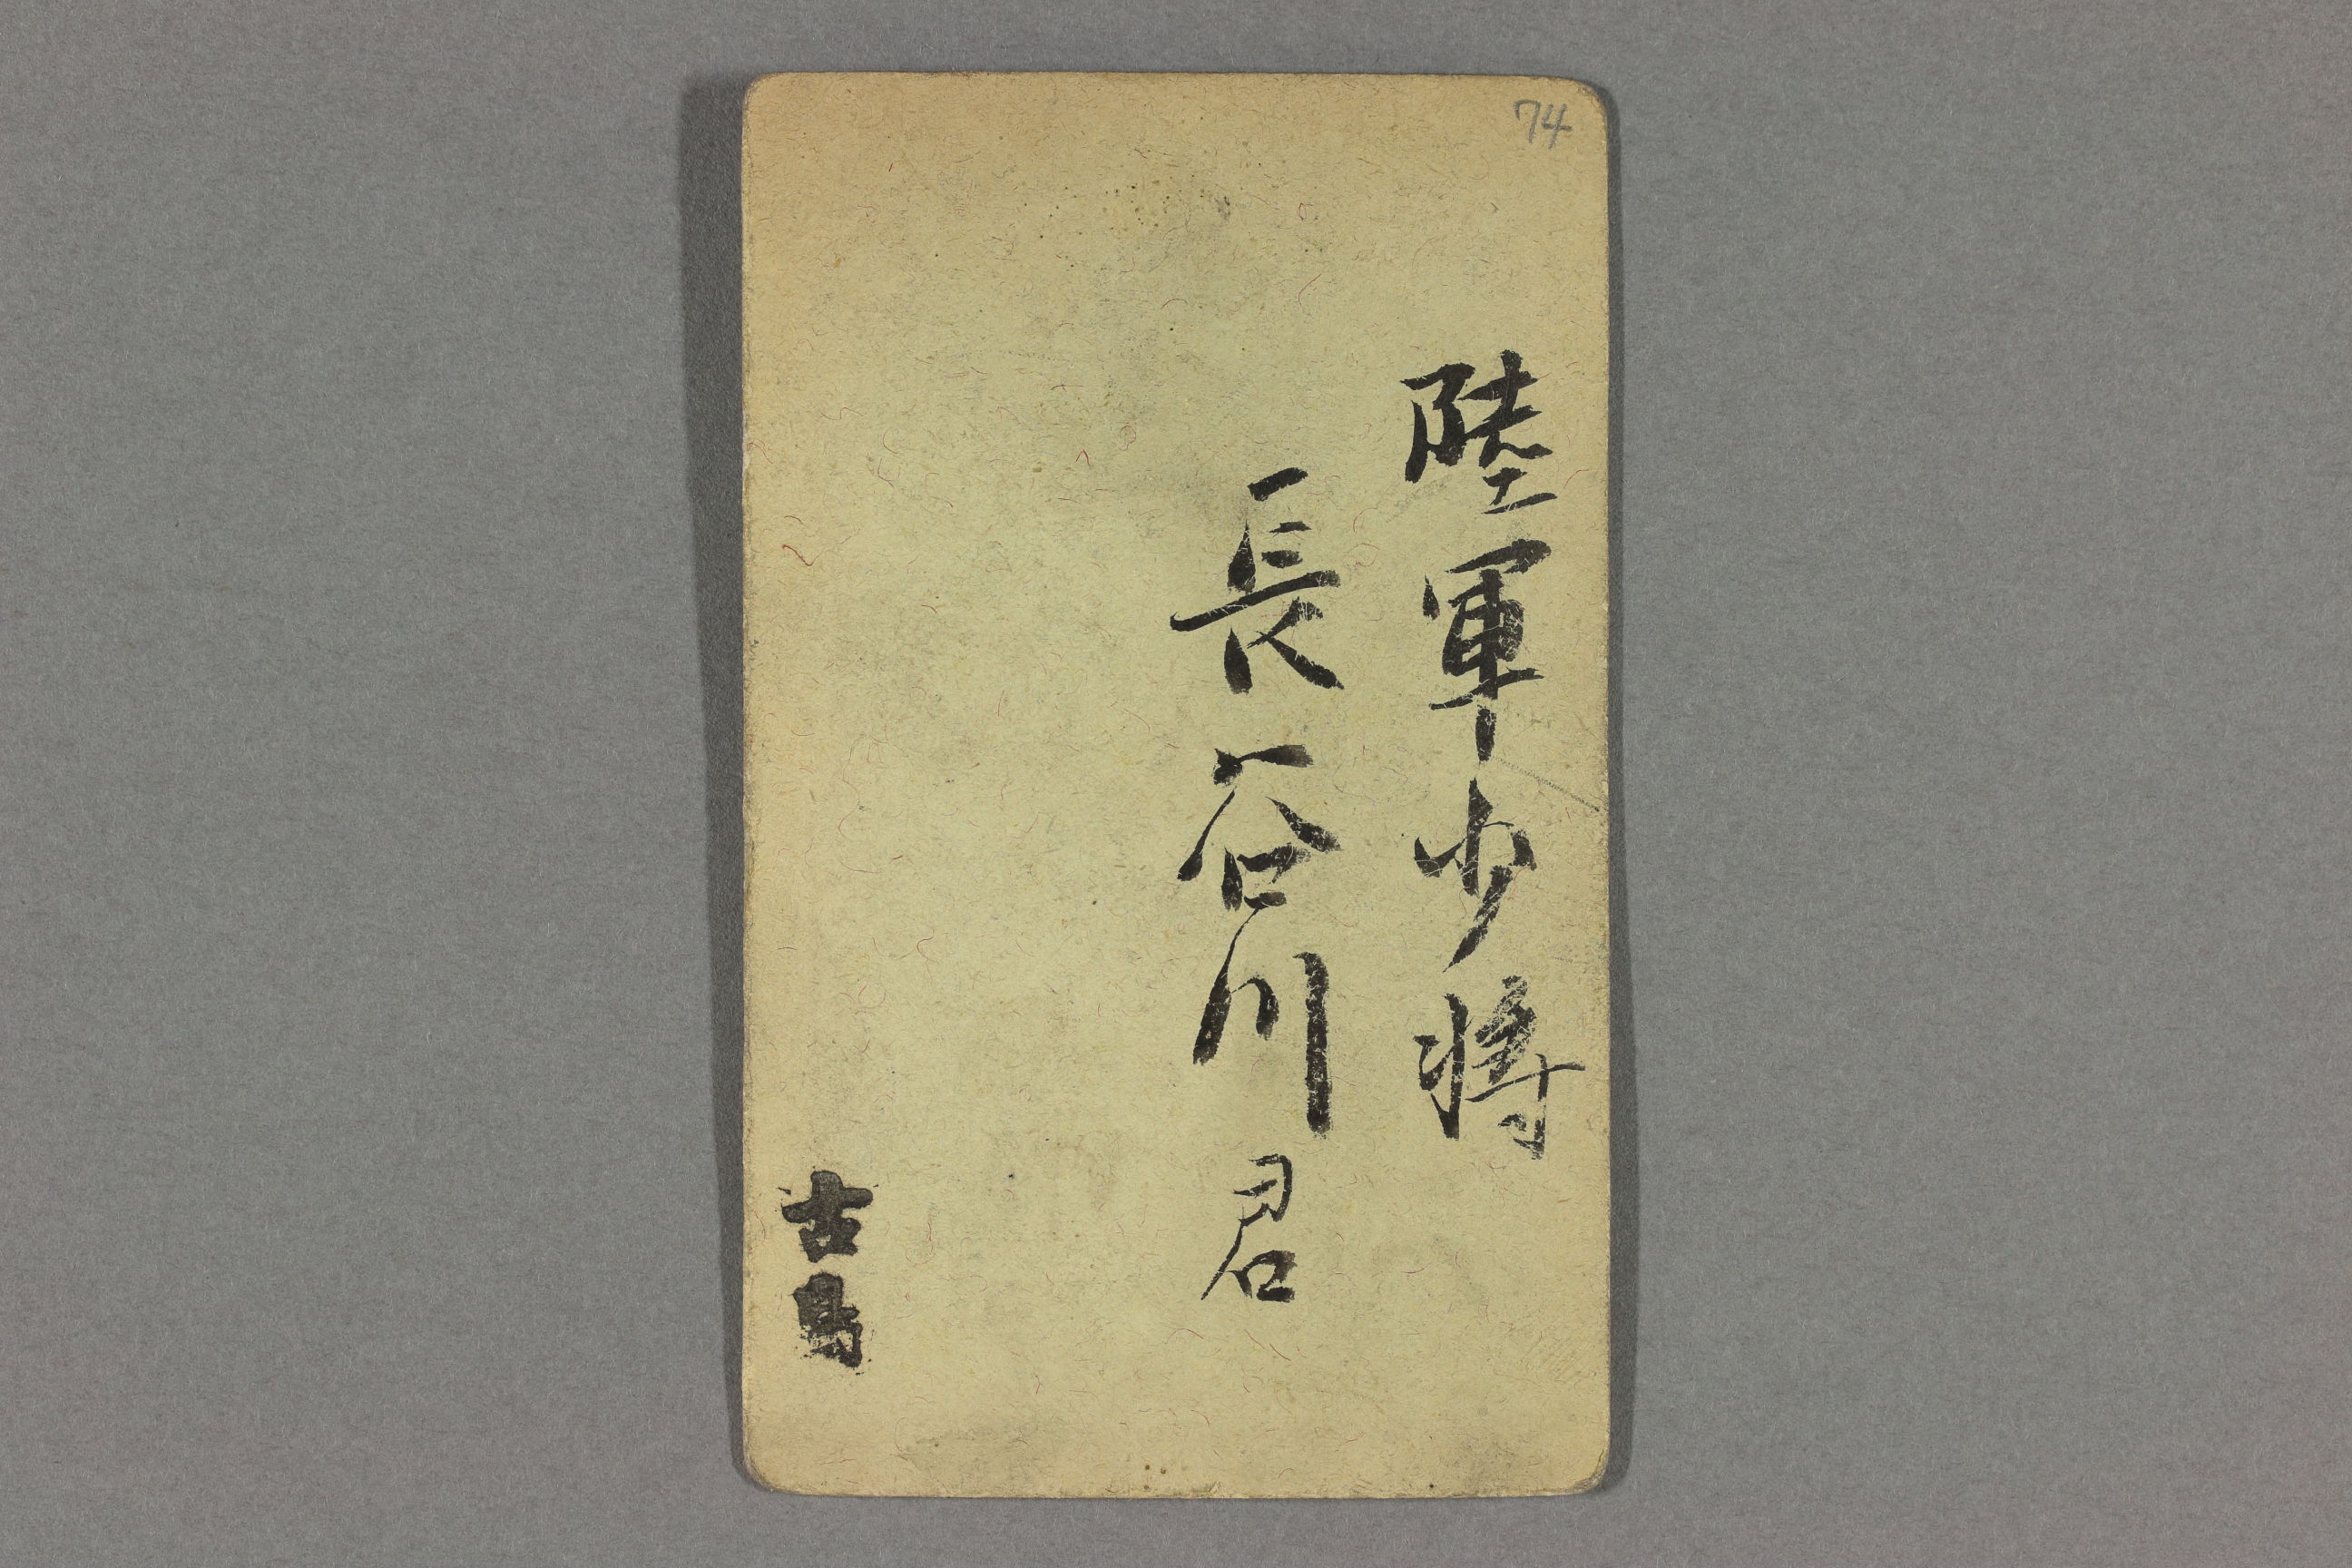 74
陸軍少将
長谷川君
古島